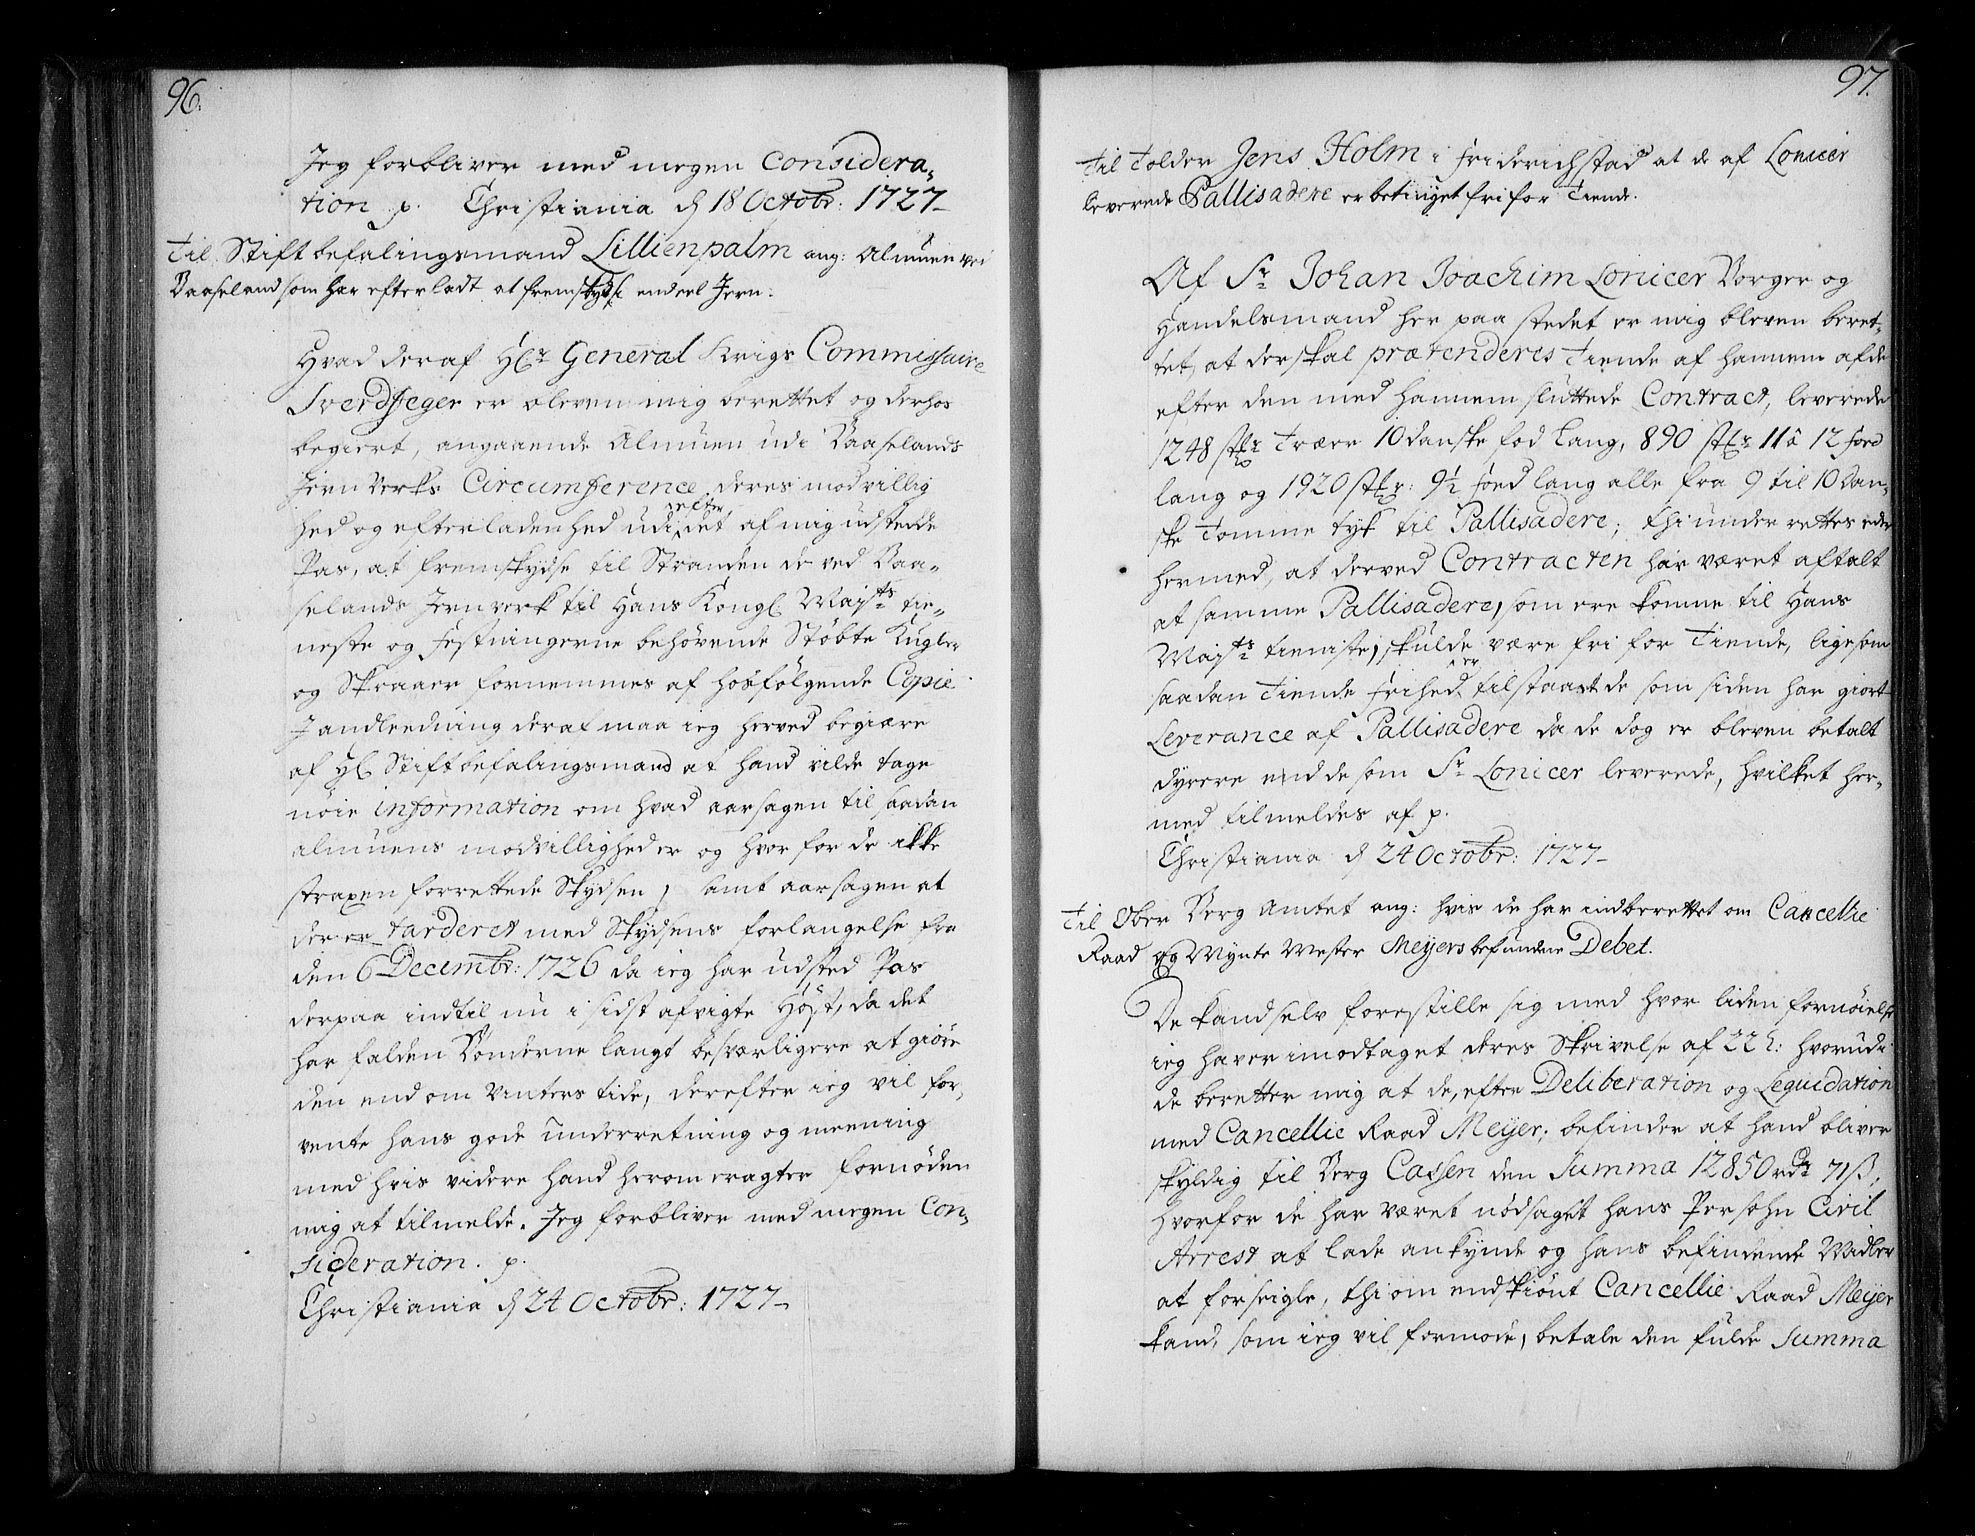 96.
Jeg forbliver med megen Considera-
tion p. Christiania d 18 Octobr: 1727
Til Stiftbefalingsmand Lillienpalm ang: Almuen ved
Baaseland som har efterladt at fremskydse endeel Jern.
Hvad deraf Hr General Krigs Commissaire
Sverdfeger er bleven mig berettet og derhos
begiert, angaaende Almuen udi Baaselands
Jernverks Circumference deres modvillig
hed og efterladenhed udi efter det af mig udstedde
Pas, at fremskydse til Stranden de ved Baa-
selands Jernverk til Hans Kongl. Mayts tie-
neste og Festningerne behövende Stöbte Kugler
og Skraaer fornemmes af hosfölgende Copie
J andleedning deraf maa ieg herved begiære
af Hl Stiftbefalingsmand at hand vilde tage
nöie information om hvad aarsagen til saadan
almuens modvilligheder og hvorfor de ikke
straxen forrettede Skydsen, samt aarsagen at
der er tarderet med Skydsens forlangelse fra
den 6 Decembr: 1726 da ieg har udsted Pas
derpaa indtil nu i sidst afvigte Höst, da det
har falden Bönderne langt besværligere at giöre
den end om Vinters tide, derefter ieg vil for-
vente hans gode underretning og meening
med hvis videre hand herom eragter fornöden
mig at tilmelde. Jeg forbliver med megen Con-
sideration. p.
Christiania d 24 Octobr: 1727
97.
Til Tolder Jens Holm i Friderichstad at de af Lonicer
leverede Pallisadere er betinget fri for Tiende.
Af Sr Johan Joachim Lonicer Borger og
Handelsmand her paa stedet er mig bleven beret-
tet, at der skal prætenderes Tiende af hannem af de
efter den med hannem sluttede Contract, leverede
1248 stkr Træer 10 danske fod lang, 890 stkr 11 à 12 foed
lang og 1920 stkr: 9½ foed lang alle fra 9 til 10 Dan-
ske Tomme tyk til Pallisadere; thi underrettes eder
hermed, at derved Contracten har været aftalt
at samme Pallisadere, som ere komne til Hans
Mayts tieniste, skulde være fri for Tiende, ligesom
saadan Tiende frihed er tilstaaet de som siden har giort
Leverance af Pallisadere da de dog er bleven betalt
dyrere end de som Sr Lonicer leverede, hvilket her-
med tilmeldes af p.
Christiania d 24 Octobr: 1727
Til Ober Berg Amtet ang: hvis de har indberettet om Cancellie
Raad og Mynte Mester Meyers befundne Debet.
De kand selv forestille sig med hvor liden fornöielse
ieg haver imodtaget deres Skrivelse af 22 h: hvorudi
de beretter mig at de, efter Deliberation og Leqvidation
med Cancellie Raad Meyer; befinder at hand bliver
skyldig til Berg Cassen den Summa 12850 rdr 71 ß,
hvorfor de har været nödsaget hans Persohn Civil
Arrest at lade ankynde og hans befindende Midler
at forseigle, thi om endskiönt Cancellie Raad Meyer
kand, som ieg vil formode, betale den fulde Summa